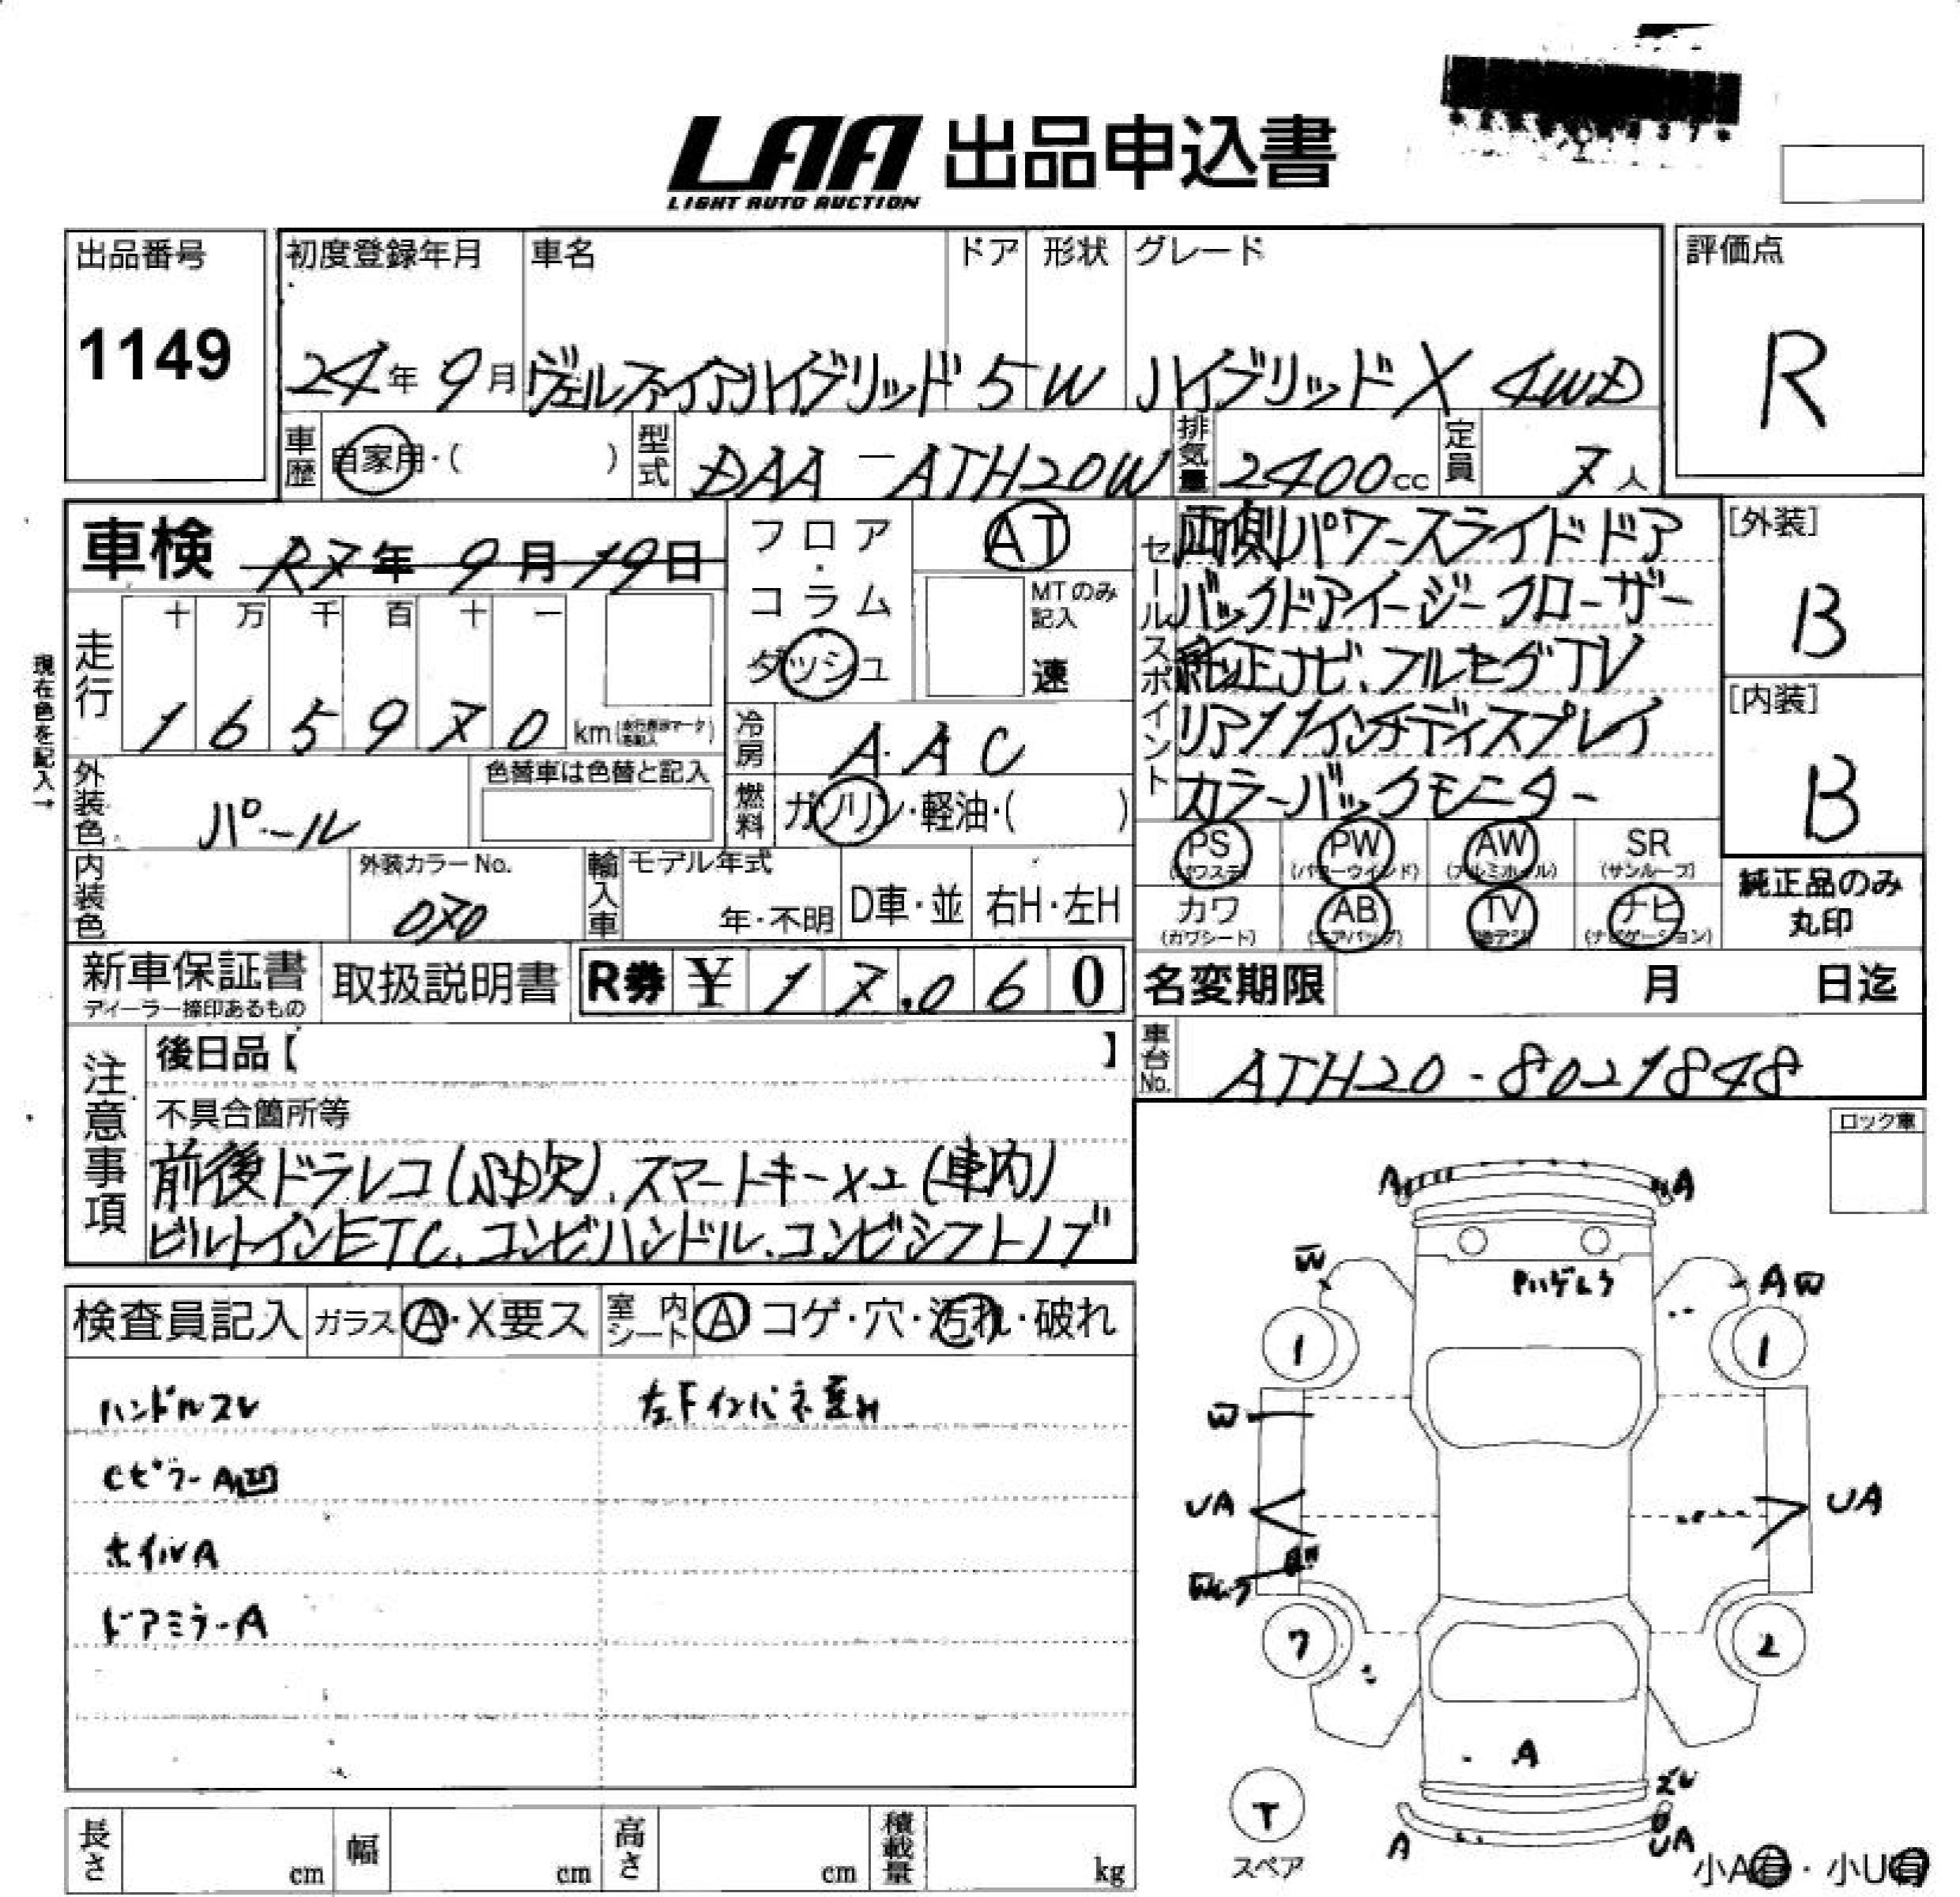 LAA 出品申込書
LIGHT AUTO AUCTION
出品番号
1149
初度登録年月 車名 ドア 形状 グレード
24年9月 ヴェルファイアハイブリッド 5 W ハイブリッドX 4WD
評価点
R
車歴 自家用・( ) 型式 DAA-ATH20W 排気量 2400cc 定員 7人
車検 R7年9月19日
フロア・コラム
ダッシュ
AT
MTのみ記入
速
現在色を記入→
走行 十 万 千 百 十 一
1 6 5 9 7 0 km
冷房 AAC
燃料 ガソリン・軽油・( )
外装色 パール
色替車は色替と記入
内装色
外装カラーNo.
070
輸入車 モデル年式
年・不明 D車・並 右H・左H
セールスポイント
両側パワースライドドア
バックドアイージークローザー
純正ナビ、フルセグTV
リア11インチディスプレイ
カラーバックモニター
[外装]
B
[内装]
B
PS PW AW SR
(パワステ) (パワーウインド) (アルミホイル) (サンルーフ)
カワ AB TV ナビ
(カワシート) (エアバッグ) (地デジ) (ナビゲーション)
純正品のみ
丸印
新車保証書
ディーラー捺印あるもの
取扱説明書
R券 ¥ 17,060
名変期限 月 日迄
車台No. ATH20-8021848
注意事項
後日品【 】
不具合箇所等
前後ドラレコ(SD欠)、スマートキー×2(車内)
ビルトインETC、コンビハンドル、コンビシフトノブ
ロック車
検査員記入 ガラス A・X要ス 室内シート A コゲ・穴・汚れ・破れ
ハンドルスレ
左Fインパネ歪み
Cピラー A凹
ホイルA
ドアミラーA
A A
W
A W
1 1
W
UA UA
7 2
A
スレ
A UA
T
スペア
小A有・小U有
長さ cm 幅 cm 高さ cm 積載量 kg